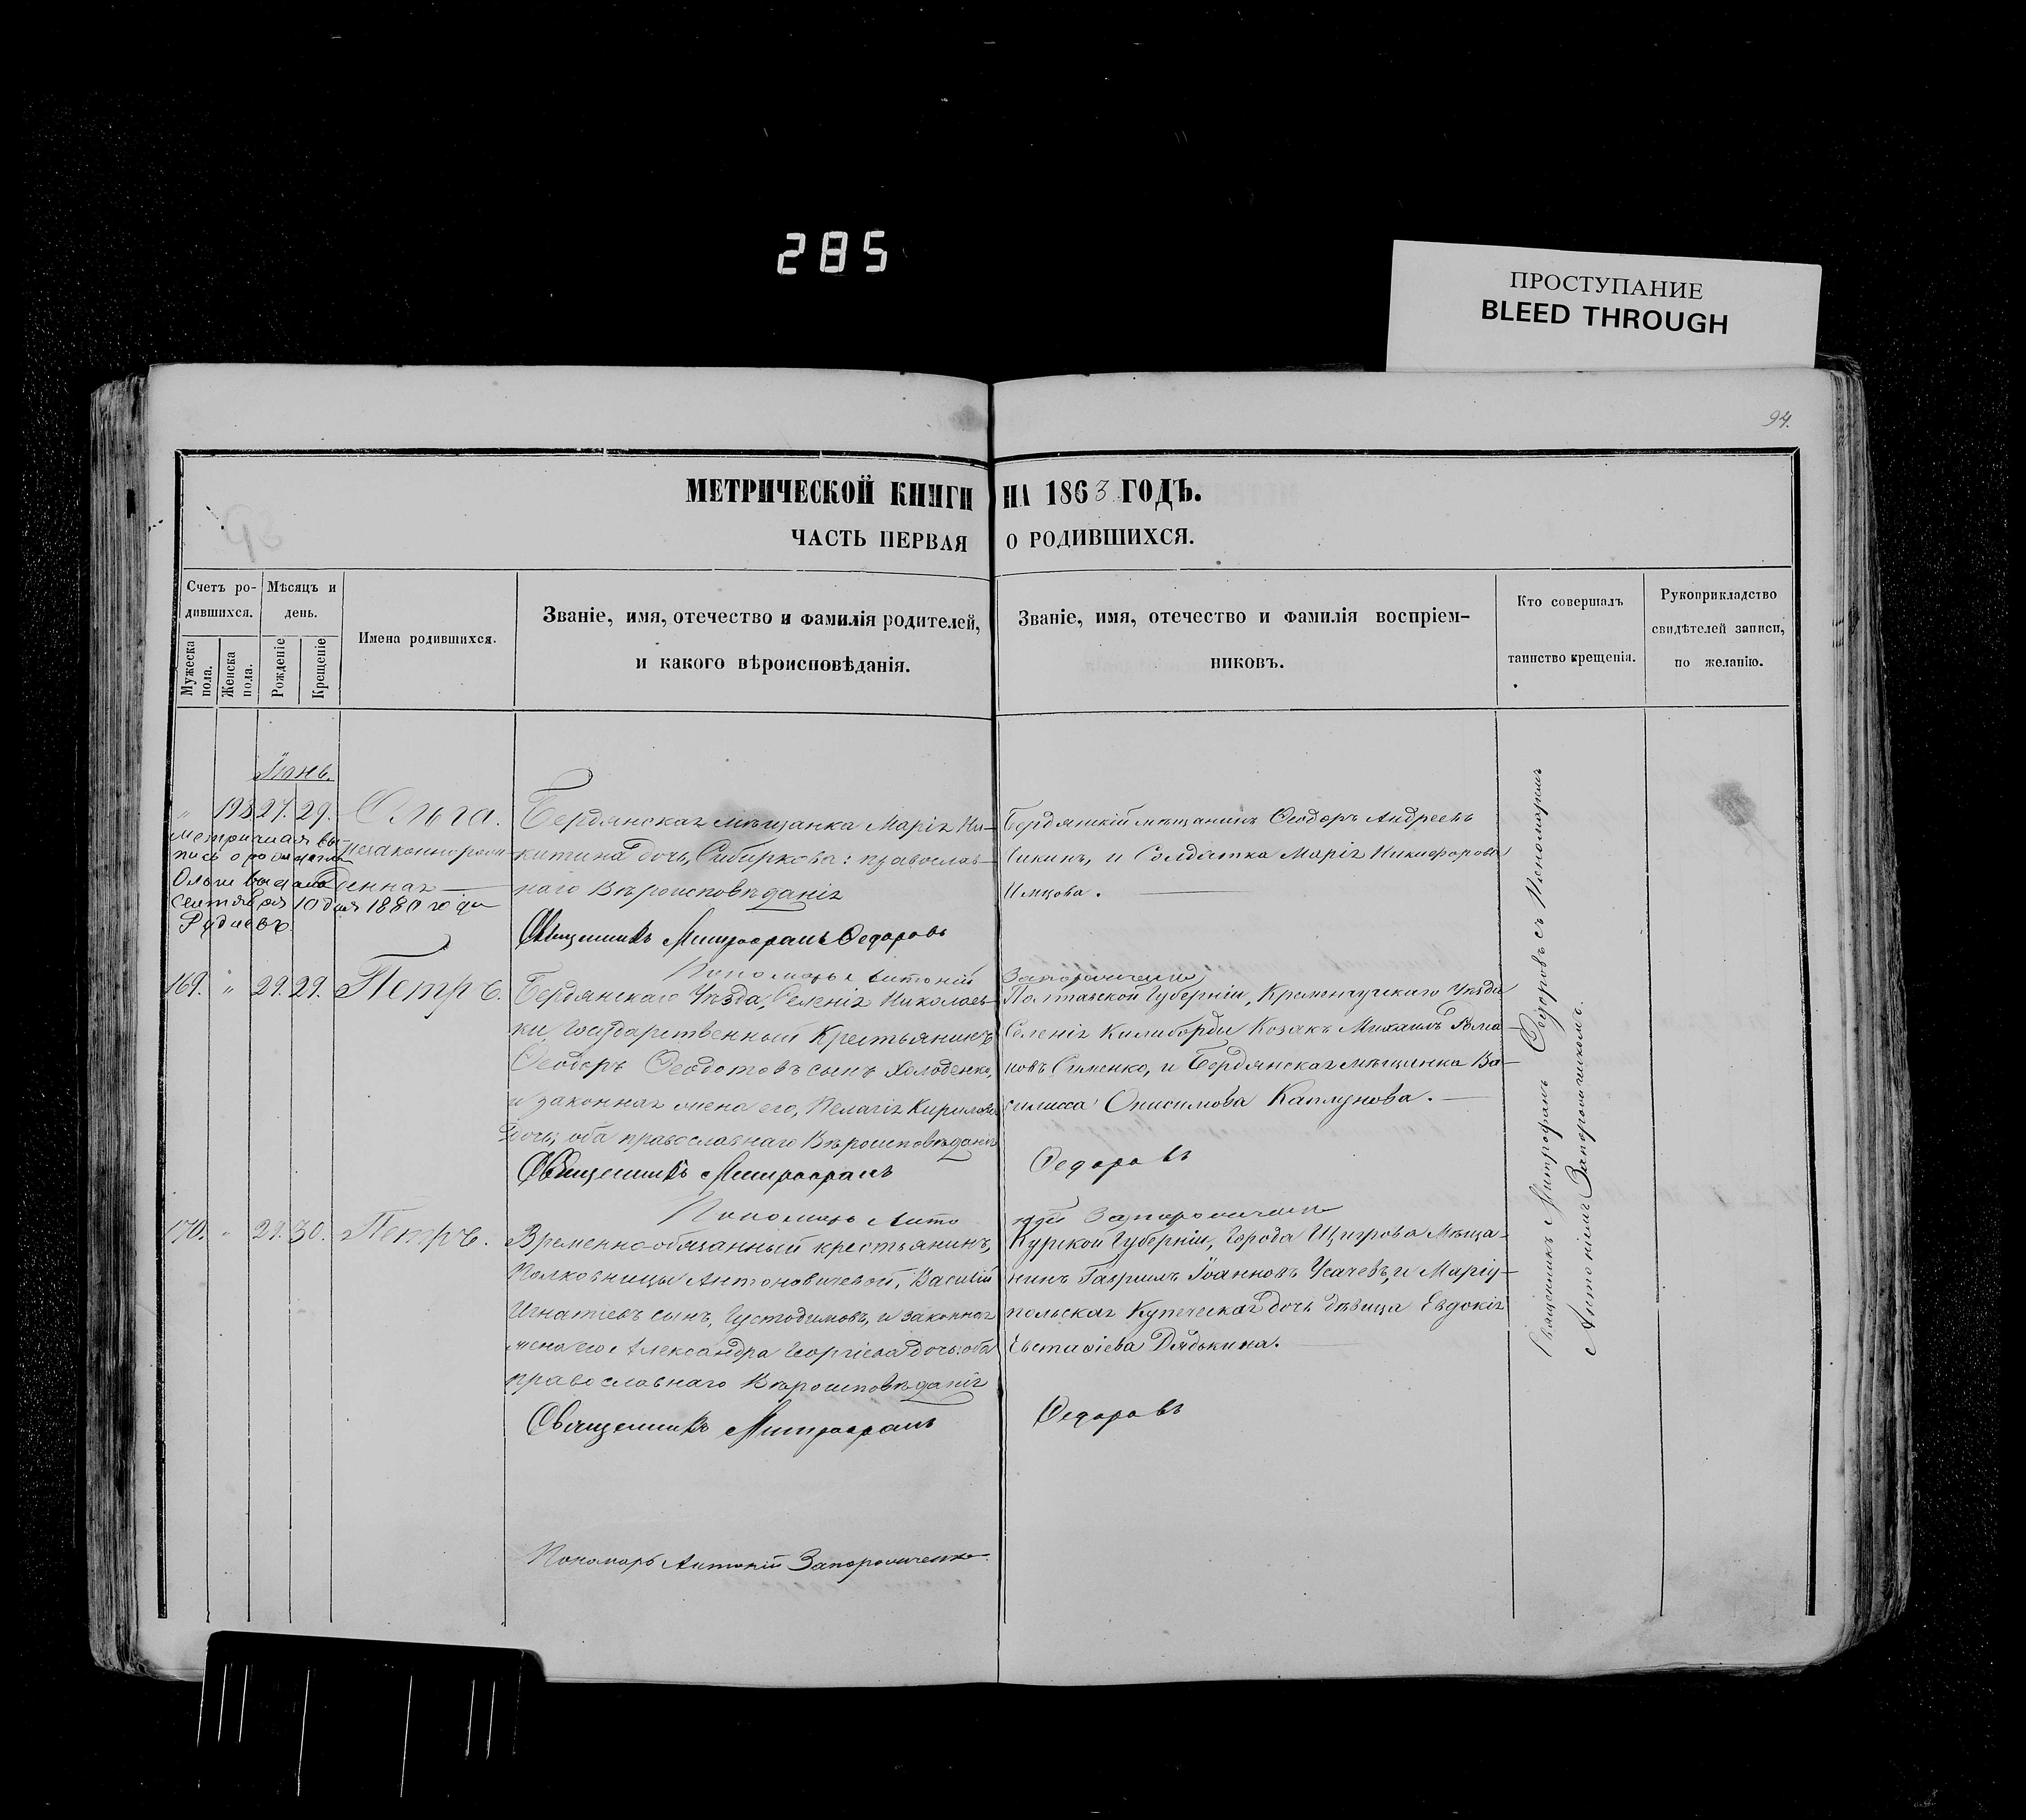 285
ПРОСТУПАНИЕ
BLEED THROUGH
94.
МЕТРИЧЕСКОЙ КНИГИ НА 1863 ГОДЪ.
ЧАСТЬ ПЕРВАЯ О РОДИВШИХСЯ.
Счетъ ро-
дившихся.
Мужеска
пола.
Женска
пола.
Мѣсяцъ и
день.
Рожденіе
Крещеніе
Имена родившихся.
Званіе, имя, отечество и фамилія родителей,
и какого вѣроисповѣданія.
Званіе, имя, отечество и фамилія воспріем-
никовъ.
Кто совершалъ
таинство крещенія.
Рукоприкладство
свидѣтелей записи,
по желанію.
Іюнь.
„ 198 27. 29. Ольга.
незаконнорож-
денная
Метричная вы-
пись о рожденіи
Ольги выдана
Сентября 10 дня 1880 года
Бердянская мѣщанка Марія Ни-
китина дочь, Сибиркова: православ-
наго Вѣроисповѣданія
Священникъ Митрофанъ Федоровъ
Пономарь Антоній Запорожченко
Бердянскій мѣщанинъ Ѳеодоръ Андреевъ
и Солдатка Марія Никифорова
Нѣмцова.
169. „ 29. 29. Петръ.
Бердянскаго Уѣзда, Селенія Николаев-
ки Государственный Крестьянинъ
Ѳеодоръ Ѳеодотовъ сынъ Холоденко,
и законная жена его, Пелагія Кирилова
дочь; оба православнаго Вѣроисповѣданія
Священникъ Митрофанъ Федоровъ
Пономарь Антоній Запорожченко
Полтавской Губерніи, Кременчугскаго Уѣзда
Селенія Козакъ Михаилъ Рома-
новъ и Бердянская мѣщанка Ва-
силисса Онисимова Каплунова.
170. „ 29. 30. Петръ.
Временно-обязанный крестьянинъ,
Полковницы Антоновичевой, Василій
Игнатіевъ сынъ, Густодимовъ, и законная
жена его Александра Георгіева дочь: оба
православнаго Вѣроисповѣданія
Священникъ Митрофанъ Федоровъ
Курской Губерніи, Города Щигрова Мѣща-
нинъ Гавриилъ Іоанновъ Усачевъ, и Маріу-
польская Купеческая дочь дѣвица Евдокія
Евстафіева Дядькина.
Пономарь Антоній Запорожченко
Священникъ Митрофанъ Федоровъ съ Пономаремъ
Антоніемъ Запорожченкомъ.